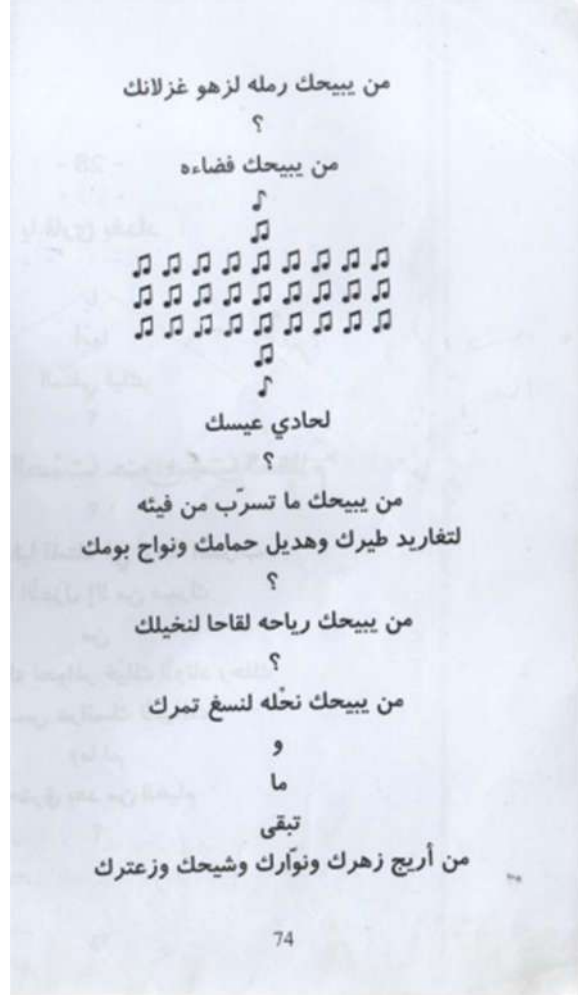 من يبيحك رمله لزهو غزلانك
؟
من يبيحك فضاءه
♪
♫
♫ ♫ ♫ ♫ ♫ ♫ ♫ ♫ ♫
♫ ♫ ♫ ♫ ♫ ♫ ♫ ♫ ♫
♫ ♫ ♫ ♫ ♫ ♫ ♫ ♫ ♫
♫
♪
لحادي عيسك
؟
من يبيحك ما تسرّب من فيئه
لتغاريد طيرك وهديل حمامك ونواح بومك
؟
من يبيحك رياحه لقاحا لنخيلك
؟
من يبيحك نحْله لنسغ تمرك
و
ما
تبقى
من أريج زهرك ونوّارك وشيحك وزعترك
74